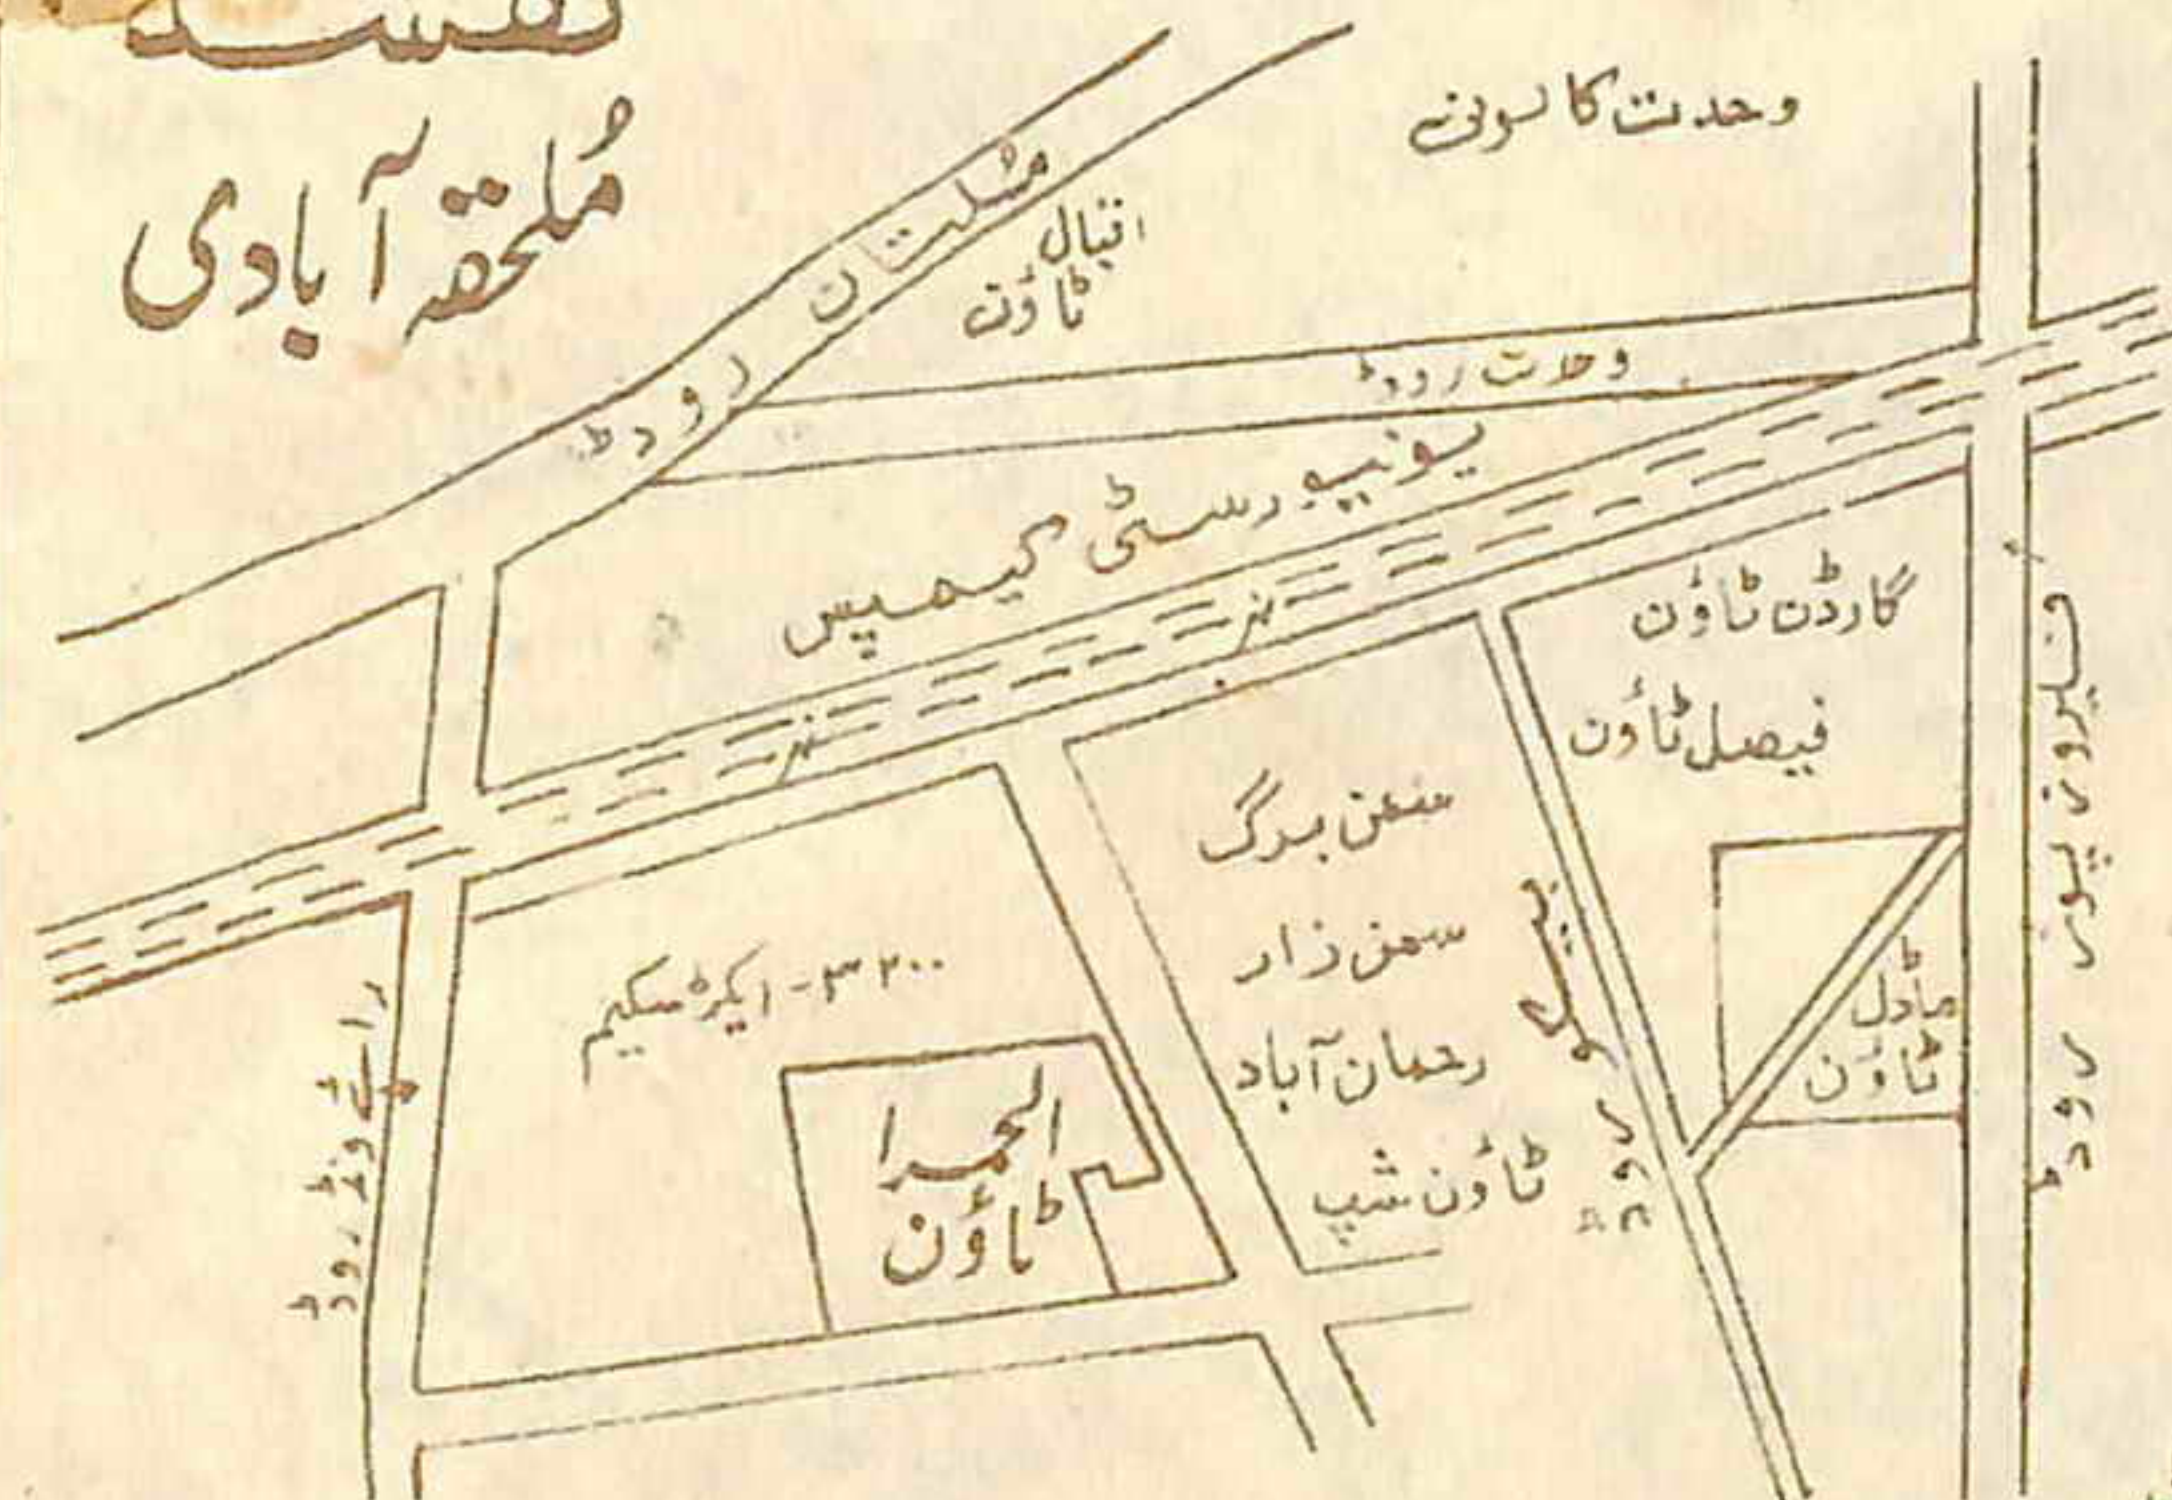 نقشہ
مُلحقہ آبادی
وحدت کالونی
ملتان روڈ
اقبال
ٹاؤن
وحدت روڈ
یونیورسٹی کیمپس
نہر
نہر
گارڈن ٹاؤن
فیصل ٹاؤن
فیروز پور روڈ
ماڈل
ٹاؤن
پیکو روڈ
سمن زار
رحمان آباد
ٹاؤن شپ
۳۲۰۰-ایکڑ سکیم
الحمرا
ٹاؤن
رائے ونڈ روڈ